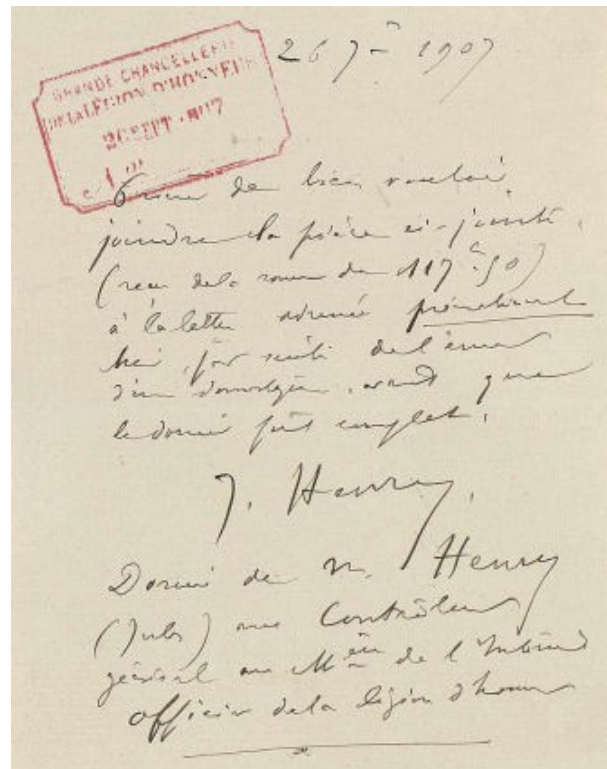 GRANDE CHANCELLERIE
DE LA LÉGION D'HONNEUR
26 SEPT. 1907
26 7re 1907
Prière de bien vouloir
joindre la pièce ci-jointe,
(reçu de la somme de 117f.50)
à la lettre adressée
hier, par suite de l'erreur
d'un domestique, avant que
le dossier fût complet.
J. Henry.
Dossier de M. Henry
(Jules) Contrôleur
général au Mère de l'Intérieur
officier de la légion d'honneur